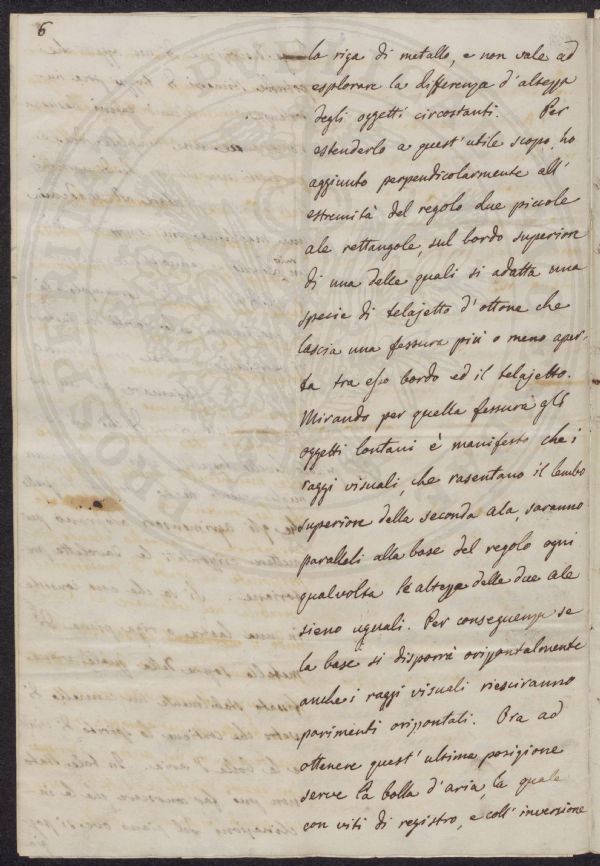 6
la riga di metallo, e non vale ad
esplorare la differenza d'altezza
degli oggetti circostanti. Per
estenderlo a quest'utile scopo, ho
aggiunto perpendicolarmente all'
estremità del regolo due piccole
ale rettangole, sul bordo superiore
di una delle quali si adatta una
specie di telajetto d'ottone che
lascia una fessura più o meno aper-
ta tra esso bordo ed il telajetto.
Mirando per quella fessura gli
oggetti lontani è manifesto che i
raggi visuali, che rasentano il lembo
superiore della seconda ala, saranno
paralleli alla base del regolo ogni
qualvolta le altezze delle due ale
sieno uguali. Per conseguenza se
la base si disporrà orizzontalmente
anche i raggi visuali riesciranno
parimenti orizzontali. Ora ad
ottenere quest'ultima posizione
serve la bolla d'aria, la quale
con viti di registro, e coll'inversione